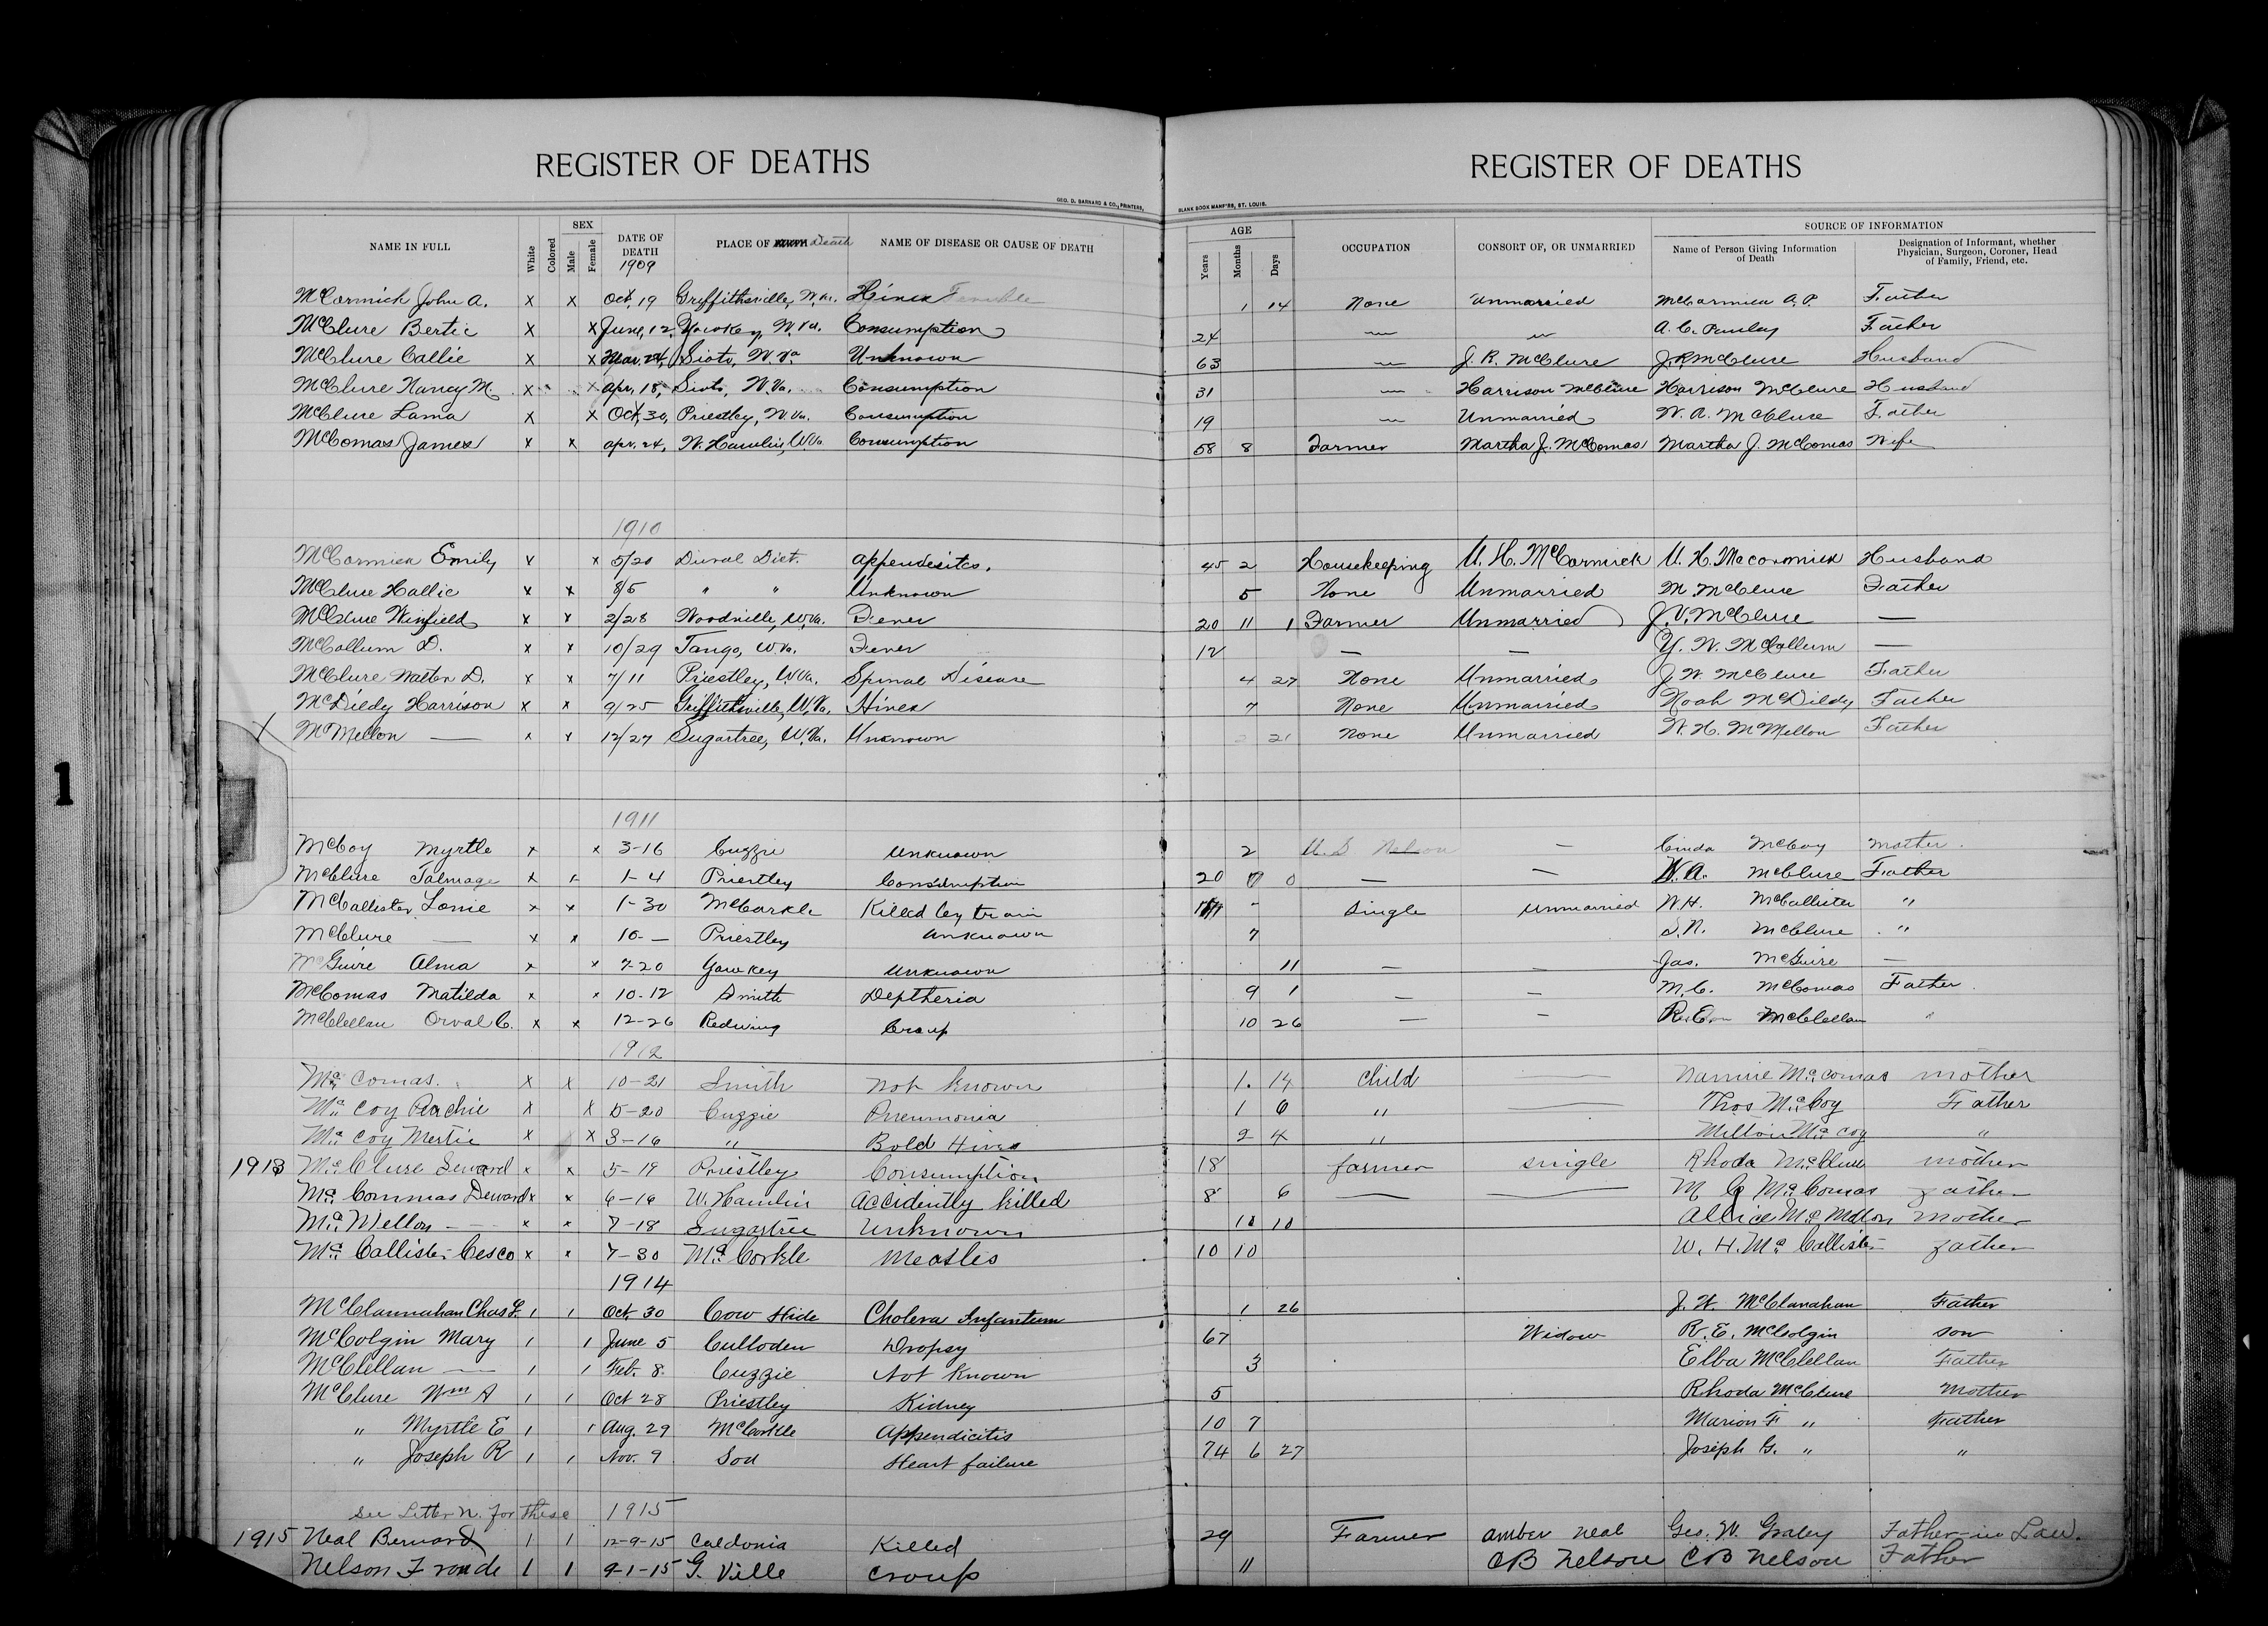 REGISTER OF DEATHS REGISTER OF DEATHS
GEO. D. BARNARD & CO., PRINTERS, BLANK BOOK MANF'RS, ST. LOUIS.
NAME IN FULL White Colored SEX Male Female DATE OF DEATH 1909 PLACE OF Death NAME OF DISEASE OR CAUSE OF DEATH AGE Years Months Days OCCUPATION CONSORT OF, OR UNMARRIED SOURCE OF INFORMATION Name of Person Giving Information of Death Designation of Informant, whether Physician, Surgeon, Coroner, Head of Family, Friend, etc.
McCormick John A. x x Oct, 19 Griffithsville, W.Va. Hives 1 14 None Unmarried McCormick A.P. Father
McClure Bertie x x June, 12, Yawkey, W.Va. Consumption 24 — — A. C. Father
McClure Callie x x Mar. 24, Sioto, W.Va Unknown 63 — J. R. McClure J. R. McClure Husband
McClure Nancy M. x x Apr, 18, Sioto, W.Va. Consumption 31 — Harrison McClure Harrison McClure Husband
McClure Lama x x Oct, 30, Priestley, W.Va. Consumption 19 — Unmarried W. A. McClure Father
McComas James x x Apr. 24, W. Hamlin, W.Va Consumption 58 8 Farmer Martha J. McComas Martha J. McComas Wife
1910
McCormick Emily x x 5/20 Duval Dist. Appendesitcs. 45 2 Housekeeping U. H. McCormick U. H. Mccormick Husband
McClure Hallie x x 8/5 " " Unknown 5 None Unmarried M. McClure Father
McClure Winfield x x 2/28 Woodville, W.Va. Fever 20 11 1 Farmer Unmarried J. V. McClure —
McCallum D. x x 10/29 Tango, W.Va. Fever 12 — — Y. W. McCallum —
McClure Walter D. x x 7/11 Priestley, W.Va. Spinal Disease 4 27 None Unmarried J. W. McClure Father
McDildy Harrison x x 9/25 Griffithsville, W.Va. Hives 7 None Unmarried Noah McDildy Father
X McMellon — x x 12/27 Sugartree, W.Va. Unknown 2 21 None Unmarried W. H. McMellon Father
1
1911
McCoy Myrtle x x 3-16 Cuzzie Unknown 2 U. S. Nelson — Cinda McCoy Mother.
McClure Talmage x x 1-4 Priestley Consumption 20 0 0 — — W. A. McClure Father
McCallister Lonie x x 1-30 McCorkle Killed by train - Single Unmarried W. H. McCallister "
McClure — x x 10- — Priestley Unknown 7 S. N. McClure "
McGuire Alma x x 7-20 Yawkey Unknown 11 — — Jas. McGuire —
McComas Matilda x x 10-12 Smith Deptheria 9 1 — — M. C. McComas Father.
McClellan Orval C. x x 12-26 Redwing Croup 10 26 — — McClellan "
1912
Mc Comas. x x 10-21 Smith not known 1. 14 child — Nannie Mc Comas mother
Mc Coy x x 5-20 Cuzzie Pneumonia 1 6 " — Thos Mc Coy Father
Mc Coy Mertie x x 3-16 " Bold Hives 2 4 " Milton Mc Coy "
1913 Mc Clure Seward x x 5-19 Priestley Consumption 18 farmer single Rhoda McClure mother
Mc Commas Deward x x 6-16 W. Hamlin Accidently killed 8 6 — — M C Mc Comas father
Mc Mellon — x x 7-18 Sugartree Unknown 11 10 Allice Mc Mellon Mother
Mc Callister Cesco x x 7-30 Mc Corkle Measles 10 10 W. H. Mc Callister father
1914
McClannahan Chas L. 1 1 Oct. 30 Cow Hide Cholera Infantum 1 26 J. W. McClanahan Father
McColgin Mary 1 1 June 5 Culloden Dropsy 67 Widow R. E. McColgin son
McClellan — 1 1 Feb. 8. Cuzzie Not Known 3 Elba McClellan Father
McClure Wm A 1 1 Oct 28 Priestley Kidney 5 Rhoda McClure Mother
" Myrtle E 1 1 Aug. 29 McCorkle Appendicitis 10 7 Marion F. " Father
" Joseph R 1 1 Nov. 9 Sod Heart failure 74 6 27 Joseph G. " "
See Letter N. for these 1915
1915 Neal Bernard 1 1 12-9-15 Caldonia Killed 29 Farmer Amber Neal Geo. W. Father-in Law.
Nelson 1 1 9-1-15 G. Ville croup 11 CB Nelson CB Nelson Father